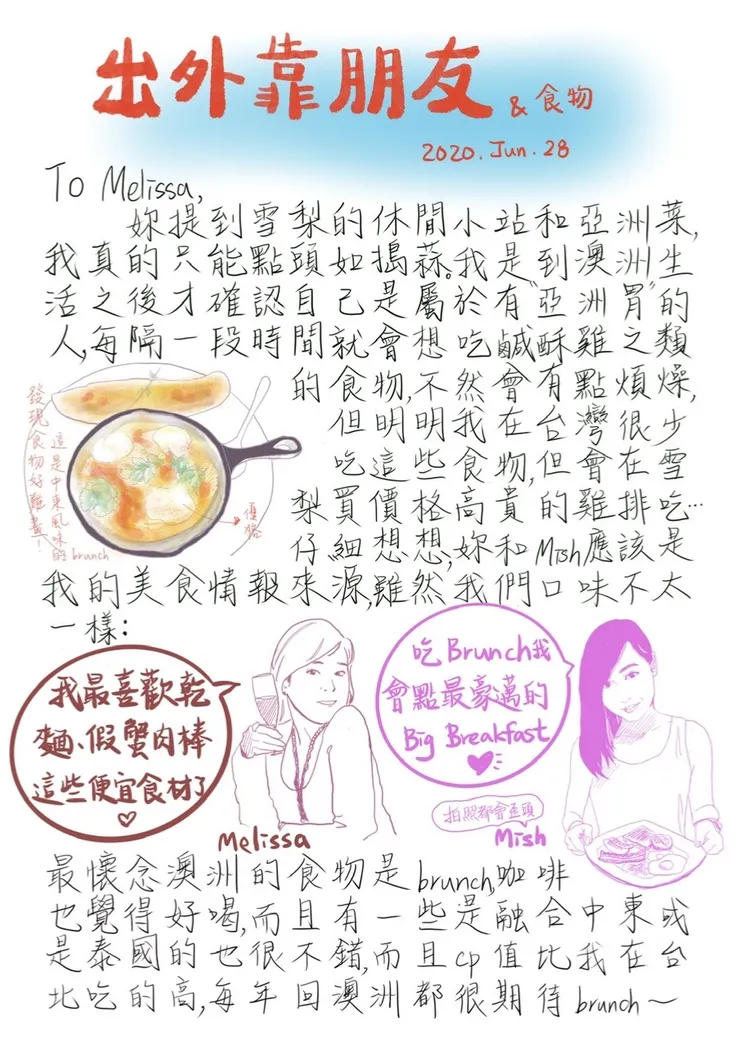 出外靠朋友 & 食物
2020. Jun. 28
To Melissa,
妳提到雪梨的休閒小站和亞洲菜,
我真的只能點頭如搗蒜。我是到澳洲生
活之後才確認自己是屬於有“亞洲胃”的
人,每隔一段時間就會想吃鹹酥雞之類
的食物,不然會有點煩燥,
但明明我在台灣很少
吃這些食物,但會在雪
梨買價格高貴的雞排吃…
仔細想想,妳和Mish應該是
我的美食情報來源,雖然我們口味不太
一樣:
發現食物好難畫!
這是中東風味的brunch
優格
我最喜歡乾
麵、假蟹肉棒
這些便宜食材了
♡
Melissa
吃Brunch我
會點最豪邁的
Big Breakfast
拍照都會歪頭
Mish
最懷念澳洲的食物是brunch,咖啡
也覺得好喝,而且有一些是融合中東或
是泰國的也很不錯,而且cp值比我在台
北吃的高,每年回澳洲都很期待brunch～